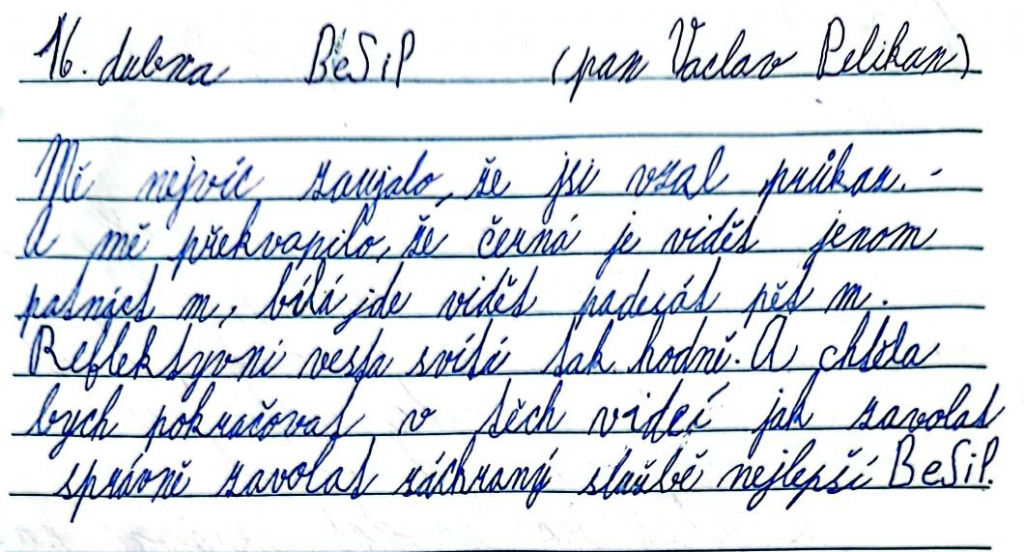 16. dubna BeSiP (pan Vaclav Pelikan)
Mě nejvíc zaujalo, že jsi vzal průkaz. -
A mě překvapilo, že černá je vidět jenom
patnáct m, bílá jde vidět padesát pět m.
Reflektyvní vesta svítí tak hodně. A chtěla
bych pokračovat v těch videí jak zavolat
správně zavolat záchraný službě nejlepší BeSiP.